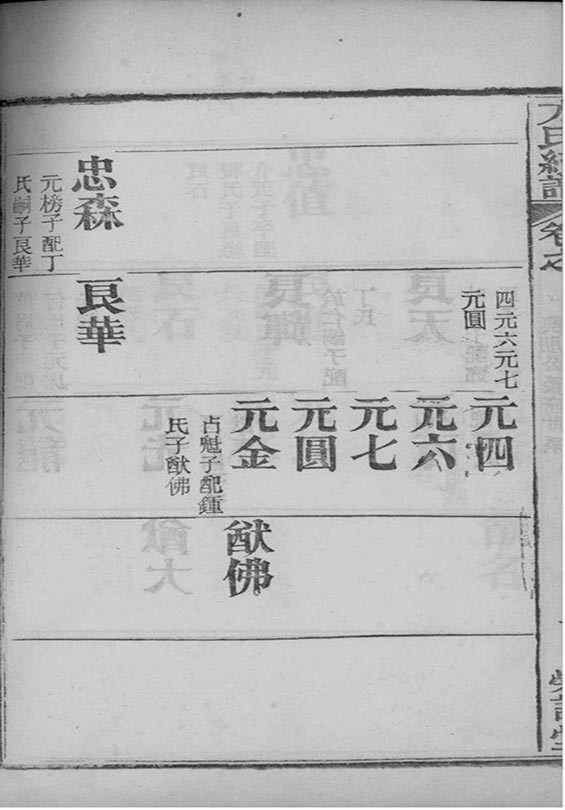 卷之
忠森
元榜子配丁
氏嗣子艮華
四元六元七
元圓
艮華
元四
元六
元七
元圓
元金
占魁子配鍾
氏子猷佛
猷佛